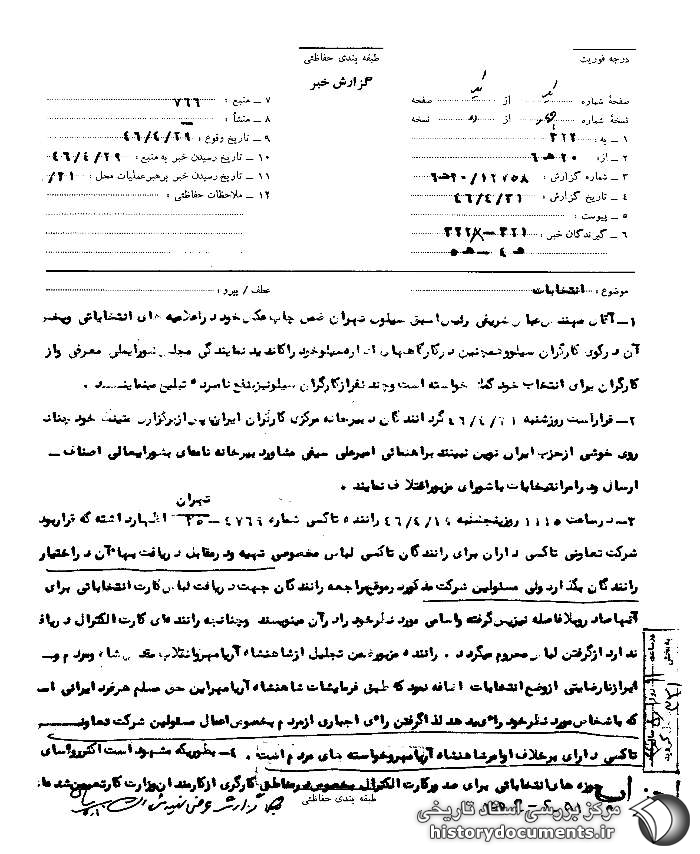 درجه فوریت
طبقه بندی حفاظتی
گزارش خبر
صفحهٔ شماره یک از یک صفحه
نسخهٔ شماره از نسخه
۱ ـ به : ۳۲۲
۲ ـ از : ۲۰ هـ ۶
۳ ـ شماره گزارش : ۱۲۷۵۸ / ۲۰ هـ ۶
۴ ـ تاریخ گزارش : ۴۶/۴/۳۱
۵ ـ پیوست :
۶ ـ گیرندگان خبر : ۳۲۱ ـ ۳۲۲
۷ ـ منبع : ۷۶۶
۸ ـ منشأ : ــ
۹ ـ تاریخ وقوع : ۴۶/۴/۲۹
۱۰ ـ تاریخ رسیدن خبر به منبع : ۴۶/۴/۲۹
۱۱ ـ تاریخ رسیدن خبر برهبر عملیات محل : ۲۱/
۱۲ ـ ملاحظات حفاظتی :
موضوع : انتخابات
عطف / پیرو :
۱ ـ آقای مهندس عباس شریفی رئیس اسبق سیلوی تهران ضمن چاپ عکس خود در اعلامیه های انتخاباتی وپخش
آن در کوی کارگران سیلو وهمچنین در کارگاههای اداره سیلو خود را کاندید نمایندگی مجلس شورایملی معرفی واز
کارگران برای انتخاب خود کمک خواسته است وچند نفر از کارگران سیلو نیز بنفع نامبرده تبلیغ مینمایند .
۲ ـ قرار است روز شنبه ۴۶/۴/۳۱ گردانندگان دبیرخانه مرکزی کارگران ایران پس از برگزاری میتینگ خود چنانچه
روی خوشی از حزب ایران نوین نبینند براهنمائی امیرعلی سیفی مشاور دبیرخانه نامه‌ای بشورایعالی اصناف ـ
ارسال ودر امر انتخابات با شورای مزبور ائتلاف نمایند .
۳ ـ در ساعت ۱۱۱۵ روز پنجشنبه ۴۶/۴/۲۹ راننده تاکسی شماره ۴۷۶۶ ـ تهران ۲۵ اظهار داشته که قرار بود
شرکت تعاونی تاکسی داران برای رانندگان تاکسی لباس مخصوصی تهیه ودر مقابل دریافت بهای آن در اختیار
رانندگان بگذارد ولی مسئولین شرکت مذکور در موقع مراجعه رانندگان جهت دریافت لباس کارت انتخاباتی برای
آنها صادر وبلافاصله نیز پس گرفته واسامی مورد نظر خود را در آن مینویسند وچنانچه راننده‌ای کارت الکترال دریافت
ندارد از گرفتن لباس محروم میگردد . راننده مزبور ضمن تجلیل از شاهنشاه آریامهر وانقلاب مقدس شاه ومردم و ـ
ابراز نارضایتی از وضع انتخابات اضافه نمود که طبق فرمایشات شاهنشاه آریامهر این حق مسلم هر فرد ایرانی است
که باشخاص مورد نظر خود رأی بدهد لذا گرفتن رأی اجباری از مردم بخصوص اعمال مسئولین شرکت تعاونی
تاکسی داران برخلاف اوامر شاهنشاه آریامهر وخواسته های مردم است . ۴ ـ بطوریکه مشهود است اکثر رؤسای
حوزه های انتخاباتی برای صدور کارت الکترال مخصوصاً در مناطق کارگری از کارمندان وزارت کار تعیین شده‌اند
طبقه بندی حفاظتی
مرکز بررسی اسناد تاریخی
historydocuments.ir